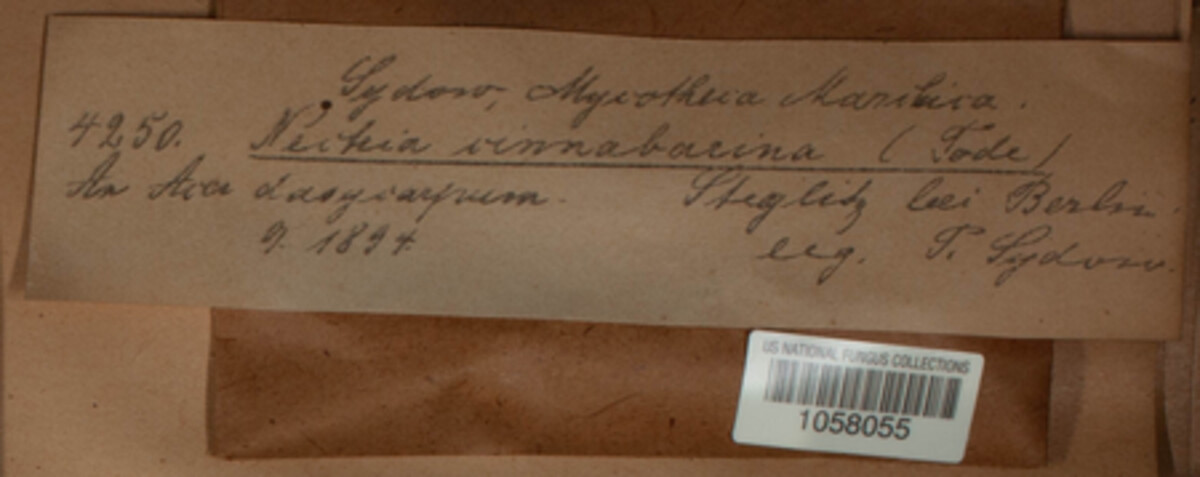 Sydow, Mycotheca Marchica.
4250. Nectria cinnabarina (Tode)
An Acer dasycarpum. Steglitz bei Berlin.
9. 1894. leg. P. Sydow.
US NATIONAL FUNGUS COLLECTIONS
1058055